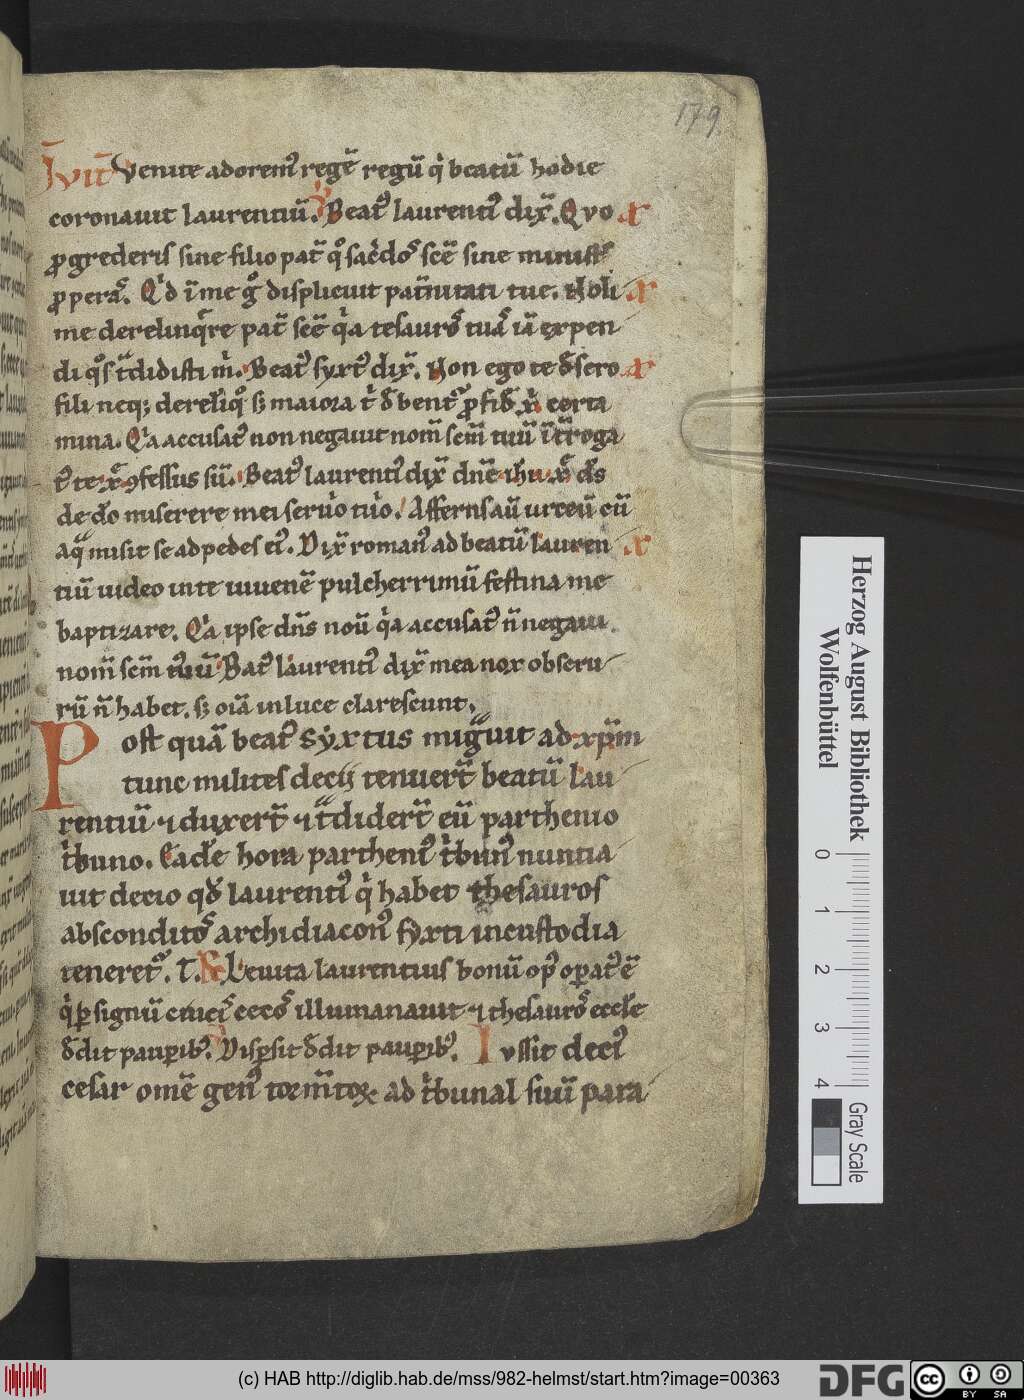 179
Ivit Venite adorem᾿ regē regū q̇ beatū hodie
coronavit laurentiū. Beat᾿ laurenti᾿ dix̄. Qvo
ꝓgrederis sine filio pat̄ q̊ sac̄dos scē sine minist᾿
ꝓperas. Qd ī me g̊ displicuit pat̄nitati tue. Noli
me derelinq̄re pat̄ scē q̇a tesauros tuos iā expen
di q̊s t̄didisti m̄. Beat᾿ syxt᾿ dix̄. Non ego te d̄sero
fili neq; derelīq̊ sꝫ maiora t̄ d̄bent᾿ ꝓ fid̄ x̄ı certa
mina. Q̇a accusat᾿ non negavit nom̄ scm̄ tuū īt̄roga
t᾿ te xp̄ ꝯfessus sū. Beat᾿ laurenti᾿ dix̄ dn̄e ihū xp̄ ds̄
de dō miserere mei servo tuo. Affferns aū urceū cū
aqᵃ misit se ad pedes ei᾿. Dix̄ roman᾿ ad beatū lauren
tiū video in te iuvenē pulcherrimū festina me
baptizare. Q̇a ipse dn̄s nou̅ q̇a accusat᾿ n̄ negaui
nom̄ scm̄ tuū Bat᾿ laurenti᾿ dix̄ mea nox obscu
rū n̄ habet. sꝫ oīa in luce clarescunt.
Post quā beat᾿ Syxtus migᵃuit ad xp̄m
tunc milites decij tenuert̄ beatū lau
rentiū ⁊ duxert̄ ⁊ tᵃdidert̄ eū parthenio
t̄buno. Eadē hora partheni᾿ t̄bun᾿ nuntia
vit decio qd̄ laurenti᾿ q̇ habet thesauros
absconditos archidiacon᾿ syxti in custodia
teneret᾿. T. Levita laurentius bonū op᾿ oꝑat᾿ ē
q̇ ꝑ signū cruc᾿ cecos illuminavit ⁊ thesauros eccle
d̄dit pauꝑib᾿. Disꝑsit d̄dit pauꝑib᾿. Iussit deci᾿
cesar omē gen᾿ torm̄toꝝ ad t̄bunal suū para
Herzog August Bibliothek
Wolfenbüttel
0 1 2 3 4
Gray Scale
(c) HAB http://diglib.hab.de/mss/982-helmst/start.htm?image=00363
DFG
cc BY SA